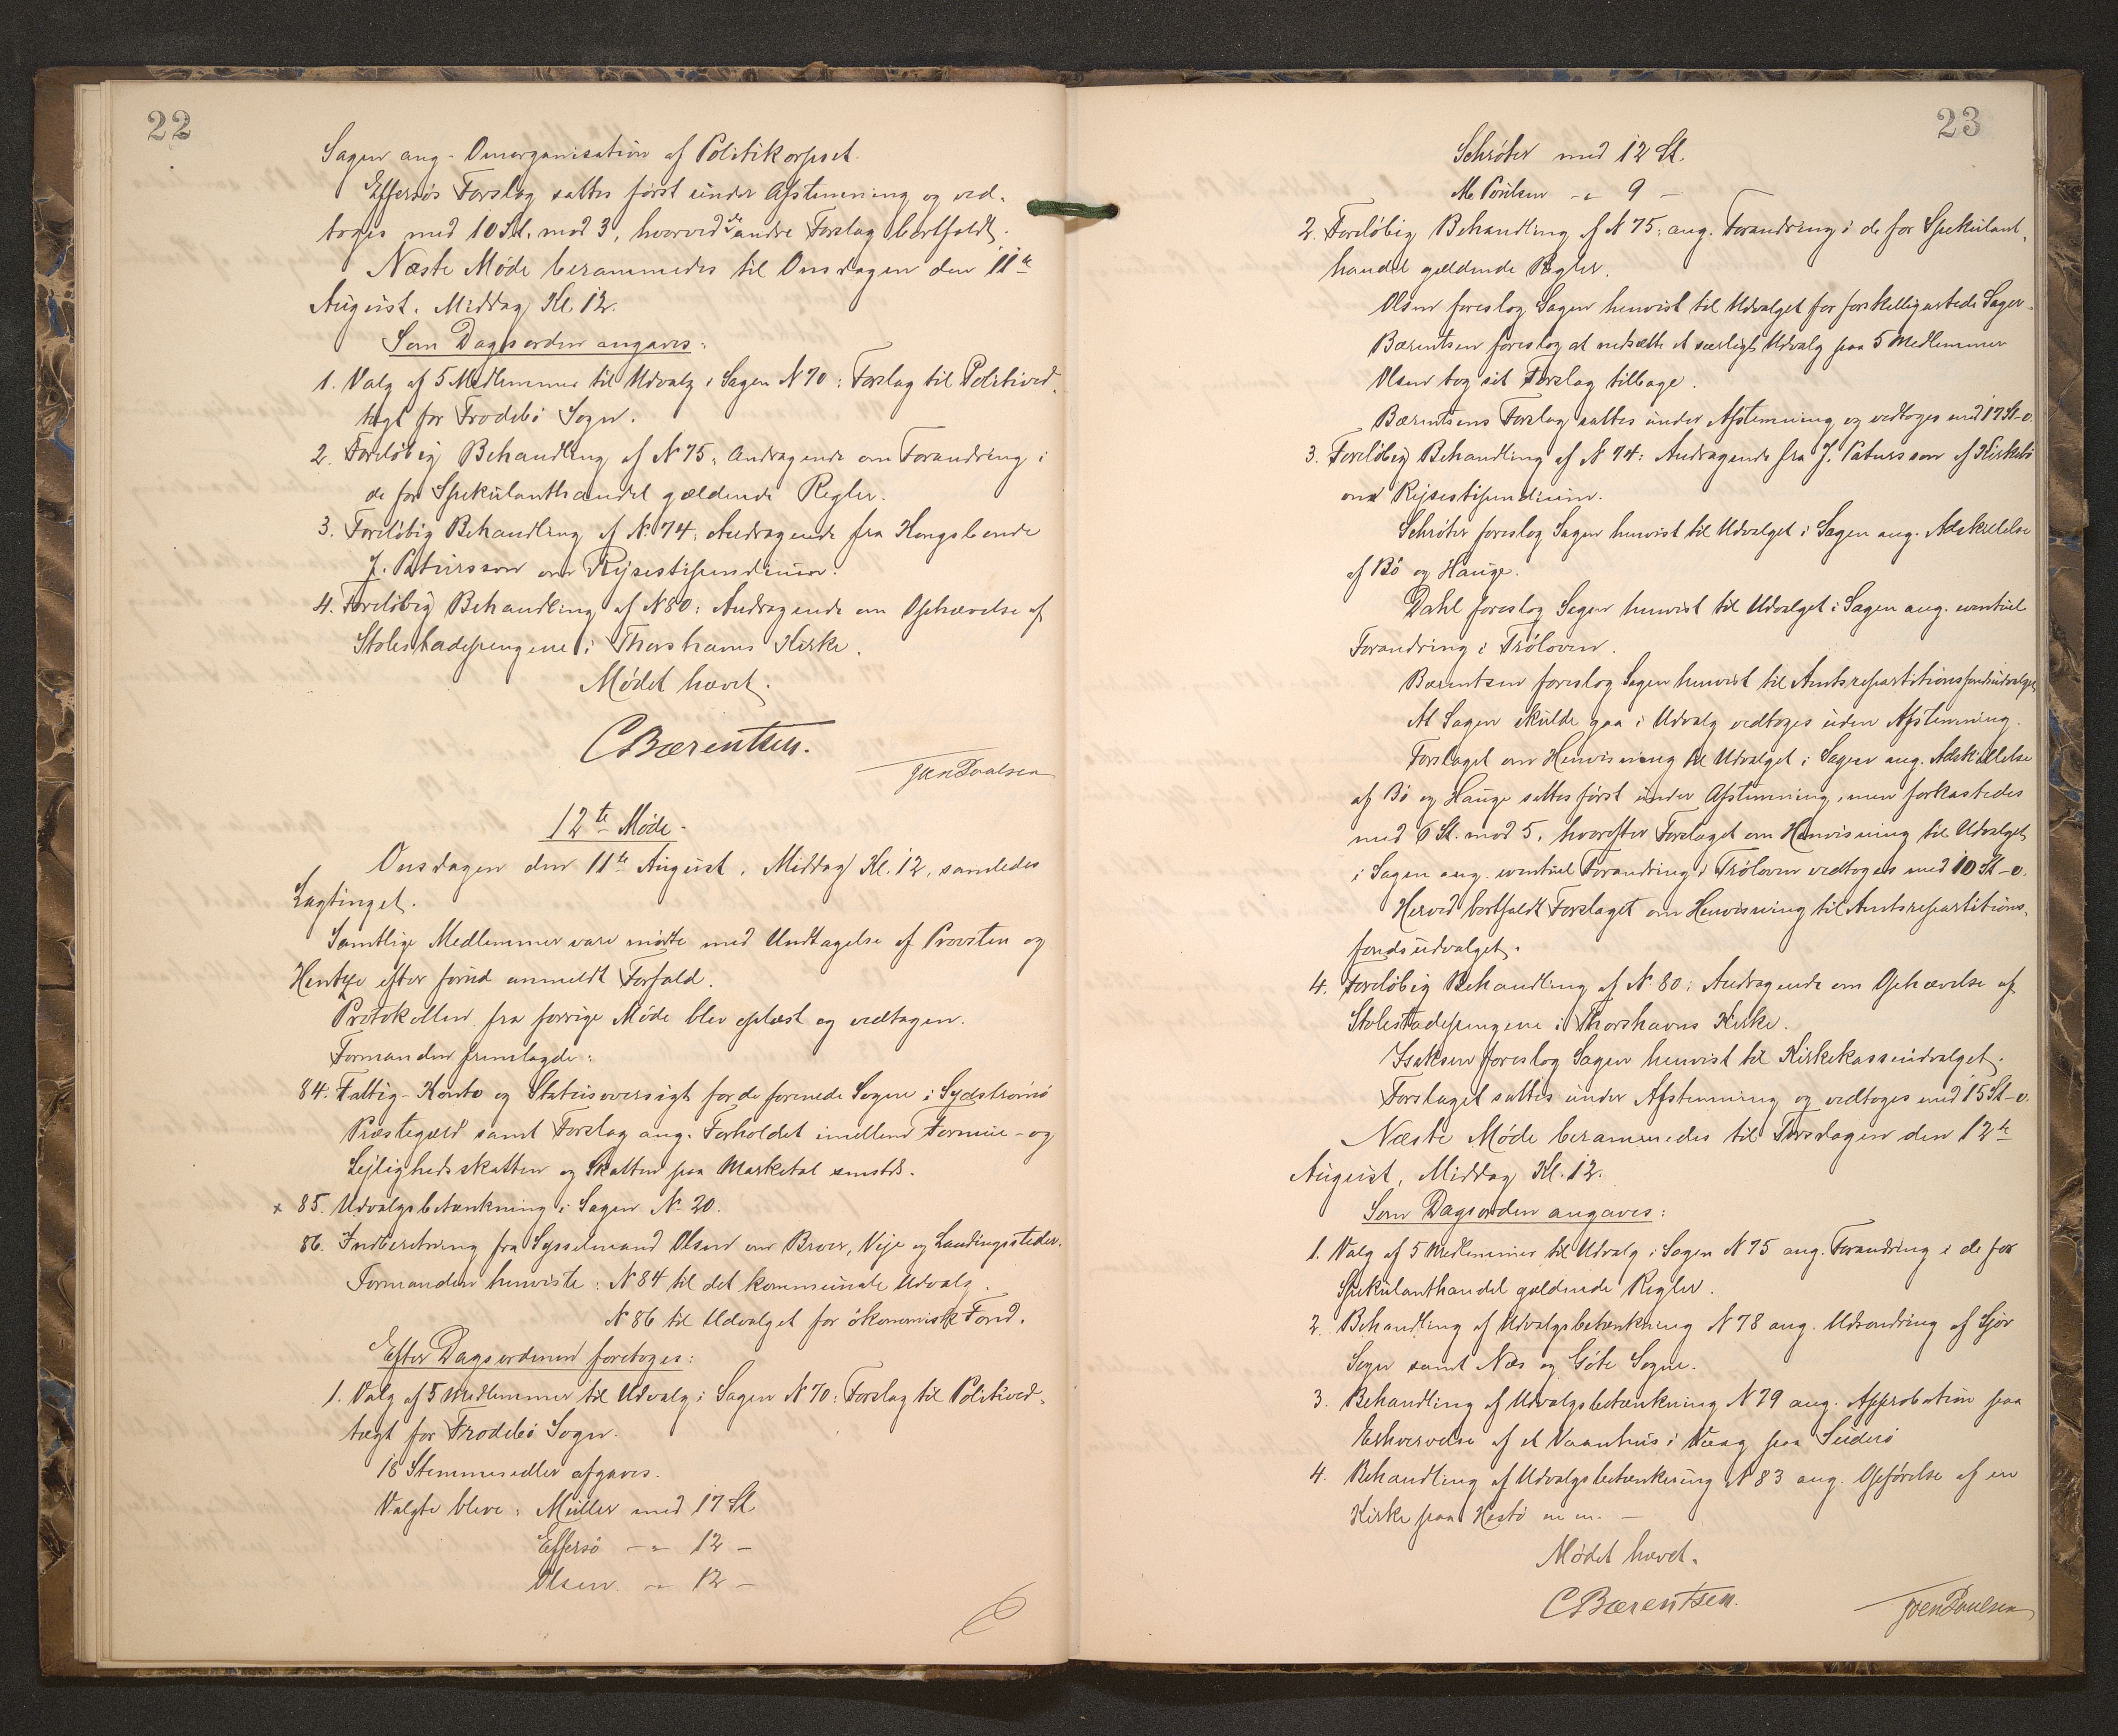 22
Sagen ang. Omorganisation af Politikorpset.
Effersøs Forslag sattes først under Afstemning og ved-
toges med 10 St. mod 3, hvorved de andre Forslag bortfaldt.
Næste Møde berammedes til Onsdagen den 11te
August, Middag Kl. 12.
Som Dagsorden angaves:
1. Valg af 5 Medlemmer til Udvalg i Sagen N 70: Forslag til Politived-
tægt for Frodebø Sogn.
2. Foreløbig Behandling af N 75, Andragende om Forandring i
de for Spekulanthandel gældende Regler.
3. Foreløbig Behandling af N. 74, Andragende fra Kongsbonde
J. Patursson om Rejsestipendium.
4. Foreløbig Behandling af N 80: Andragende om Ophævelse af
Stolestadepengene i Thorshavns Kirke.
Mødet hævet.
C Bærentsen.
Joen Poulsen
12te Møde.
Onsdagen den 11te August, Middag Kl. 12, samledes
Lagtinget.
Samtlige Medlemmer vare mødte med Undtagelse af Provsten og
Hentze efter forud anmeldt Forfald.
Protokollen fra forrige Møde blev oplæst og vedtagen.
Formanden fremlagde:
84. Fattig-Konto og Statusoversigt for de forenede Sogne i Sydstrømø
Præstegæld samt Forslag ang. Forholdet imellem Formue- og
Lejlighedsskatten og Skatten paa Marketal smstds.
x 85. Udvalgsbetænkning i Sagen N. 20.
86. Indberetning fra Sysselmand Olsen om Broer, Veje og Landingssteder.
Formanden henviste: N 84 til det kommunale Udvalg.
N 86 til Udvalget for økonomisk Fond.
Efter Dagsordenen foretoges:
1. Valg af 5 Medlemmer til Udvalg i Sagen N 70: Forslag til Politived-
tægt for Frodebø Sogn.
18 Stemmesedler afgaves.
Valgte bleve: Müller med 17 St.
Effersø -"- 12 -
Olsen -"- 12 -
23
Schrøter med 12 St.
M. Poulsen -"- 9 -
2. Foreløbig Behandling af N 75: ang. Forandring i de for Spekulant-
handel gældende Regler.
Olsen foreslog Sagen henvist til Udvalget for forskelligartede Sager.
Bærentsen foreslog at nedsætte et særligt Udvalg paa 5 Medlemmer
Olsen tog sit Forslag tilbage.
Bærentsens Forslag sattes under Afstemning og vedtoges med 17 St-0.
3. Foreløbig Behandling af N 74: Andragende fra J. Patursson af Kirkebø
om Rejsestipendium.
Schrøter foreslog Sagen henvist til Udvalget i Sagen ang. Adskillelse
af Bø og Hauge.
Dahl foreslog Sagen henvist til Udvalget i Sagen ang. eventuel
Forandring i Trøloven.
Bærentsen foreslog Sagen henvist til Amtsrepartitionsfondsudvalget
At Sagen skulde gaa i Udvalg vedtoges uden Afstemning.
Forslaget om Henvisning til Udvalget i Sagen ang. Adskillelse
af Bø og Hauge sattes først under Afstemning, men forkastedes
med 6 St. mod 5, hvorefter Forslaget om Henvisning til Udvalget
i Sagen ang. eventuel Forandring i Trøloven vedtoges med 10 St-0.
Herved bortfaldt Forslaget om Henvisning til Amtsrepartitions-
fondsudvalget.
4. Foreløbig Behandling af N. 80: Andragende om Ophævelse af
Stolestadepengene i Thorshavns Kirke.
Isaksen foreslog Sagen henvist til Kirkekasseudvalget.
Forslaget sattes under Afstemning og vedtoges med 15 St-0.
Næste Møde berammedes til Torsdagen den 12te
August, Middag Kl. 12.
Som Dagsorden angaves:
1. Valg af 5 Medlemmer til Udvalg i Sagen N 75 ang. Forandring i de for
Spekulanthandel gældende Regler.
2. Behandling af Udvalgsbetænkning N 78 ang. Udsondring af Sjov
Sogn samt Næs og Gøte Sogne.
3. Behandling af Udvalgsbetænkning N 79 ang. Approbation paa
Erhvervelse af et Vaanhus i Vaag paa Suderø
4. Behandling af Udvalgsbetænkning N 83 ang. Opførelse af en
Kirke paa Hestø m m. -
Mødet hævet.
C Bærentsen.
Joen Poulsen